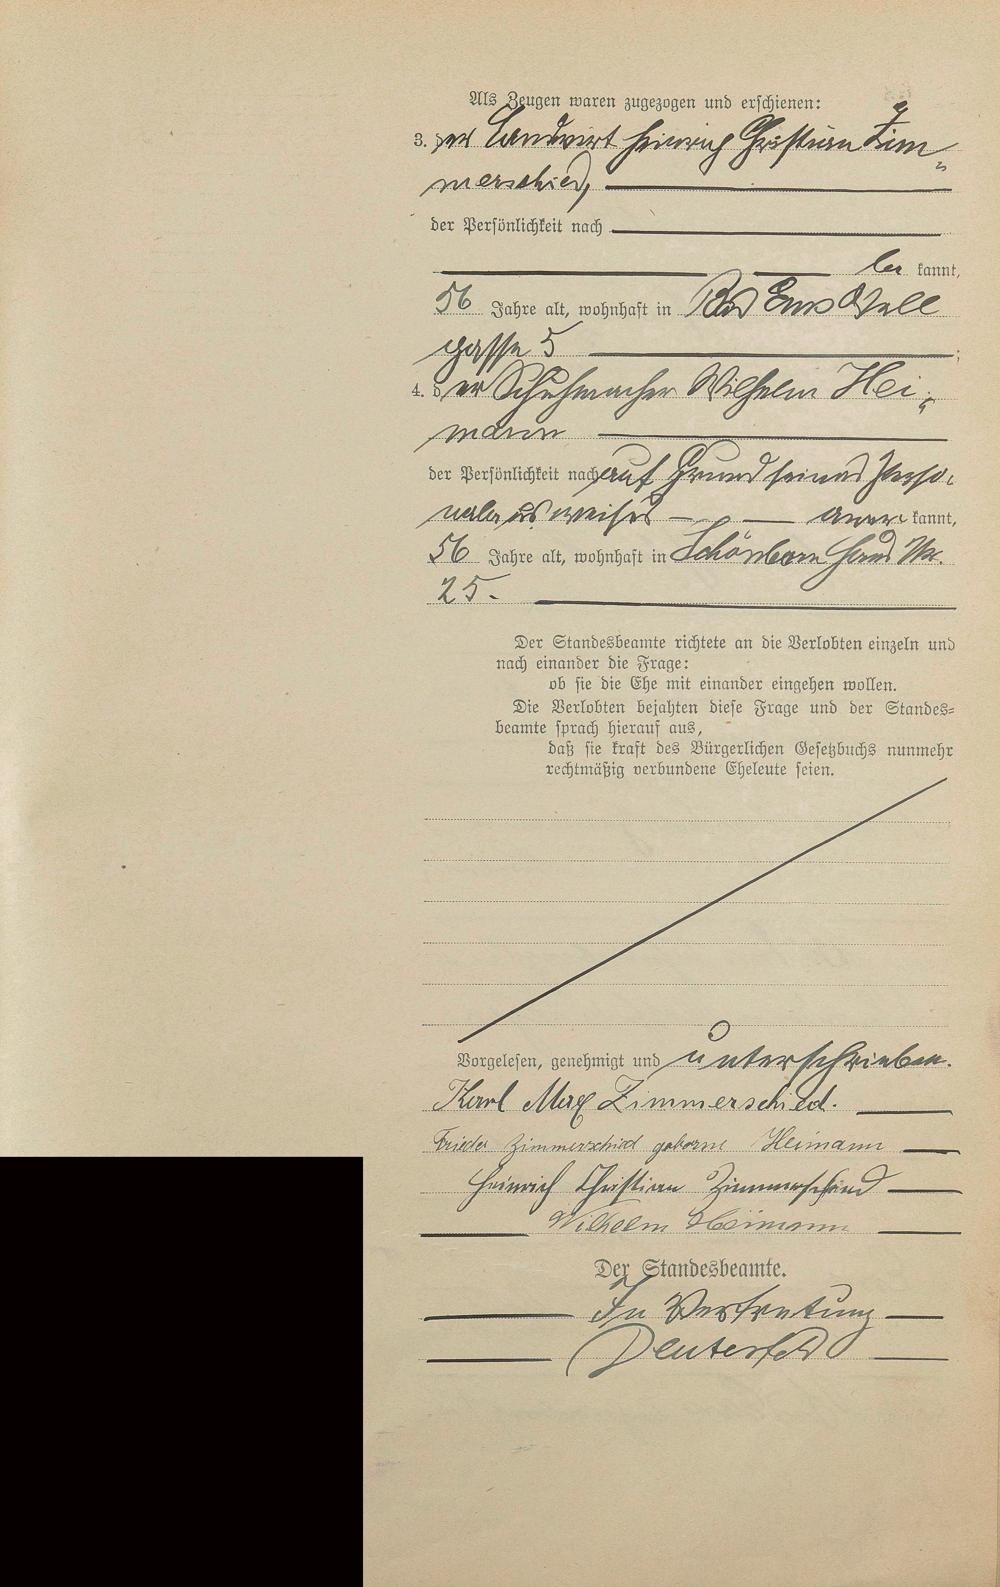 Als Zeugen waren zugezogen und erschienen:
3. der Landwirt Heinrich Christian Zim-
merschied,
der Persönlichkeit nach
be kannt,
56 Jahre alt, wohnhaft in Bad Ems Wall
gasse 5
4. der Schuhmacher Wilhelm Hei-
mann
der Persönlichkeit nach auf Grund seines Perso-
nalausweises — — aner kannt,
56 Jahre alt, wohnhaft in Schönborn Haus Nr.
25.
Der Standesbeamte richtete an die Verlobten einzeln und
nach einander die Frage:
ob sie die Ehe mit einander eingehen wollen.
Die Verlobten bejahten diese Frage und der Standes-
beamte sprach hierauf aus,
daß sie kraft des Bürgerlichen Gesetzbuchs nunmehr
rechtmäßig verbundene Eheleute seien.
Vorgelesen, genehmigt und unterschrieben.
Karl Max Zimmerschied.
Frieda Zimmerschied geborne Heimann
Heinrich Christian Zimmerschied
Wilhelm Heimann
Der Standesbeamte.
In Vertretung